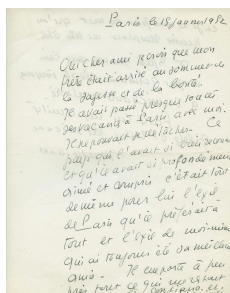 Paris le 15 janvier 1952
Oui cher ami je sais que mon
frère était arrivé au sommet de
la sagesse et de la bonté.
Il avait passé presque toutes
ses vacances à Paris avec moi.
Il ne pouvait se détacher. Ce
pays qui l'avait si bien
et qu'il avait si profondément
aimé et compris c'était tout
de même pour lui l'exil
de Paris qu'il préférait à
tout et l'exil de moi-même
qui ai toujours été sa meilleure
amie. Il emporte à peu
près tout ce qui me